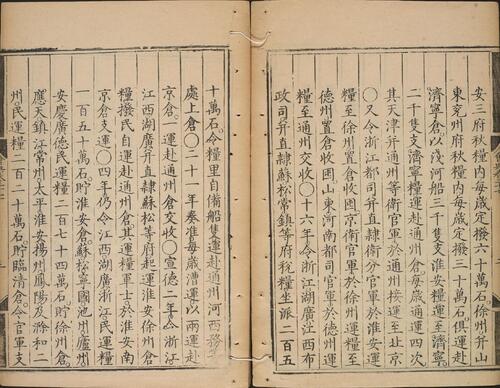 安三府秋糧內每歲定撥六十萬石徐州并山
東兖州府秋糧內每歲定撥三十萬石俱運赴
濟寧倉以淺河船三千隻支淮安糧運至濟寧
二千隻支濟寧糧運赴通州倉每歲通運四次
其天津并通州等衛官軍於通州接運至北京
○又令浙江都司并直隷衛分官軍於淮安運
糧至徐州置倉收囤京衛官軍於徐州運糧至
德州置倉收囤山東河南都司官軍於德州運
糧至通州交收○十六年令浙江湖廣江西布
政司并直隷蘇松常鎮等府稅糧坐派二百五
十萬石令糧里自備船隻運赴通州河西務等
處上倉○二十一年奏准每歲漕運以兩運赴
京倉一運赴通州倉交收○宣德二年令浙江
江西湖廣并直隷蘇松等府起運淮安徐州倉
糧撥民自運赴通州倉其運糧軍士於淮安南
京倉支運○四年仍令江西湖廣浙江民運糧
一百五十萬石貯淮安倉蘇松寧國池州廬州
安慶廣德民運糧二百七十四萬石貯徐州倉
應天鎮江常州太平淮安揚州鳳陽及滁和二
州民運糧二百二十萬石貯臨清倉令官軍支